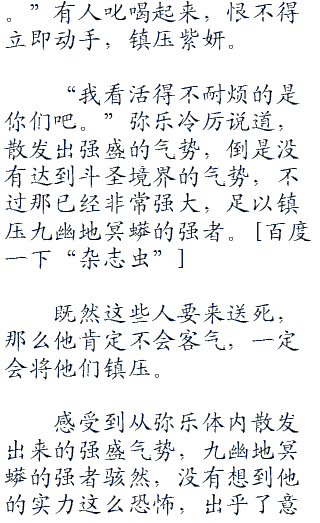 。”有人叱喝起来，恨不得
立即动手，镇压紫妍。
“我看活得不耐烦的是
你们吧。”弥乐冷厉说道，
散发出强盛的气势，倒是没
有达到斗圣境界的气势，不
过那已经非常强大，足以镇
压九幽地冥蟒的强者。[百度
一下“杂志虫”]
既然这些人要来送死，
那么他肯定不会客气，一定
会将他们镇压。
感受到从弥乐体内散发
出来的强盛气势，九幽地冥
蟒的强者骇然，没有想到他
的实力这么恐怖，出乎了意